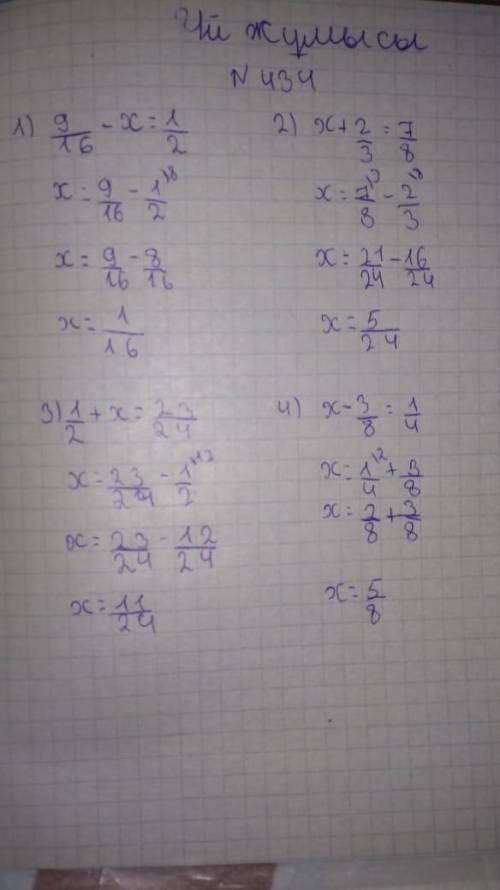 Үй жұмысы
N 434
1) 9/16 - x = 1/2
x = 9/16 - 1/2 \8
x = 9/16 - 8/16
x = 1/16
2) x + 2/3 = 7/8
x = 7/8 \3 - 2/3 \8
x = 21/24 - 16/24
x = 5/24
3) 1/2 + x = 23/24
x = 23/24 - 1/2 \12
x = 23/24 - 12/24
x = 11/24
4) x - 3/8 = 1/4
x = 1/4 \2 + 3/8
x = 2/8 + 3/8
x = 5/8